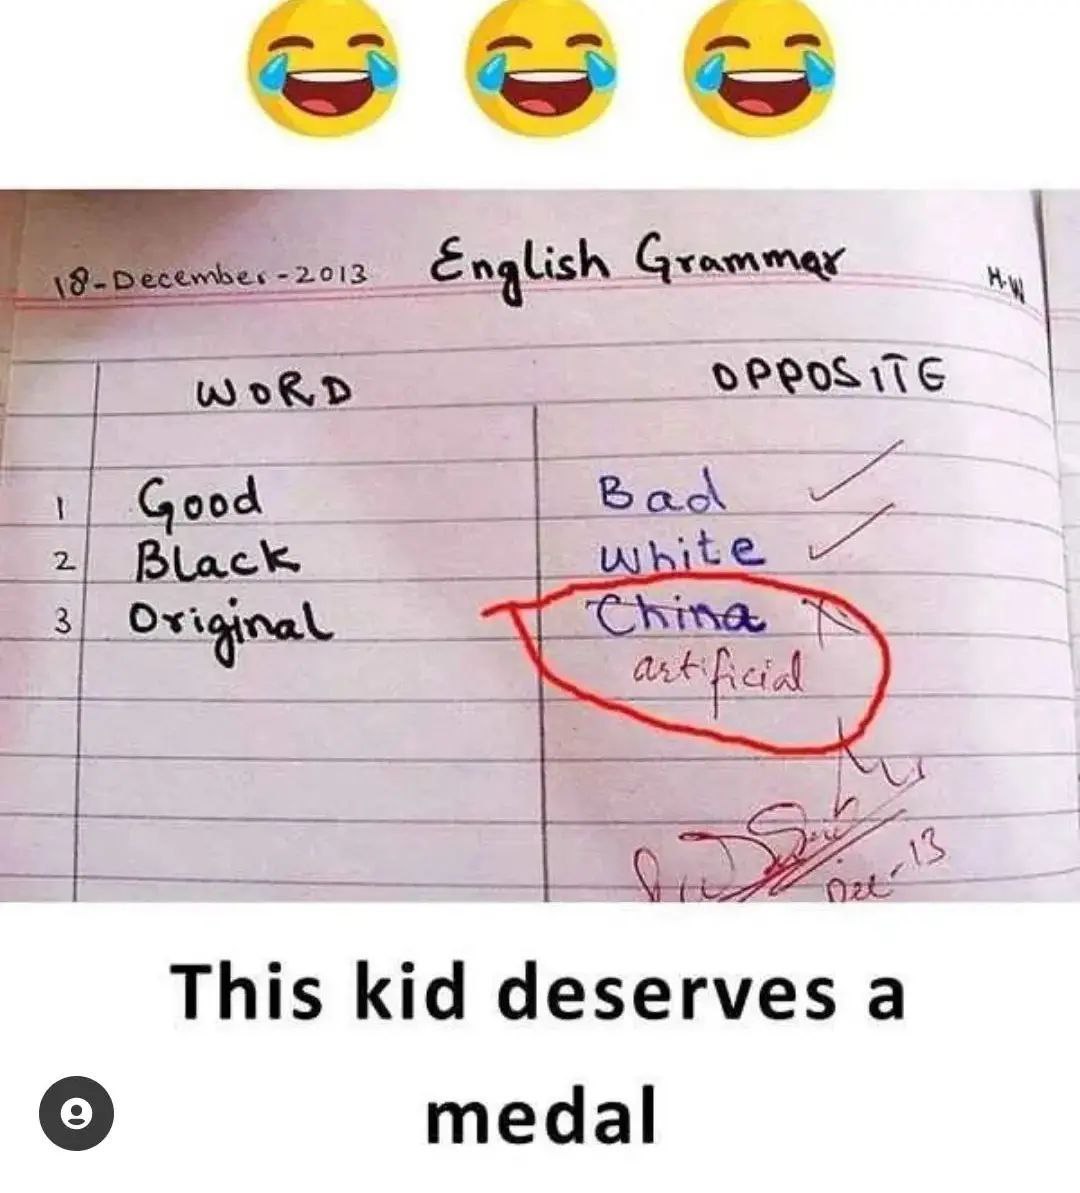 18-December-2013 English Grammar H.W
WORD OPPOSITE
1 Good Bad
2 Black White
3 Original China
artificial
Dec-13
This kid deserves a
medal